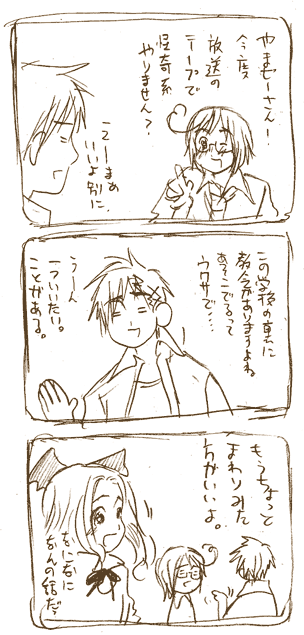 やまもーさん！
今度
放送の
テープで
怪奇系
やりません？
えーまぁ
いいよ別に
この学校の裏に
教会がありますよね
あそこでるって
ウワサで…
うーん
一ついいたい
ことがある。
もうちょっと
まわりみた
方がいいよ。
なになに
なんの話だ